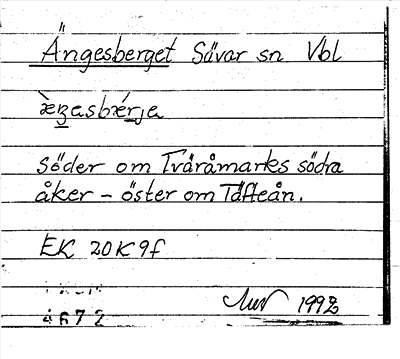 Ängesberget Sävar sn Vbl
Söder om Tväråmarks södra
åker - öster om Täfteån.
EK 20K9f
1992
4672